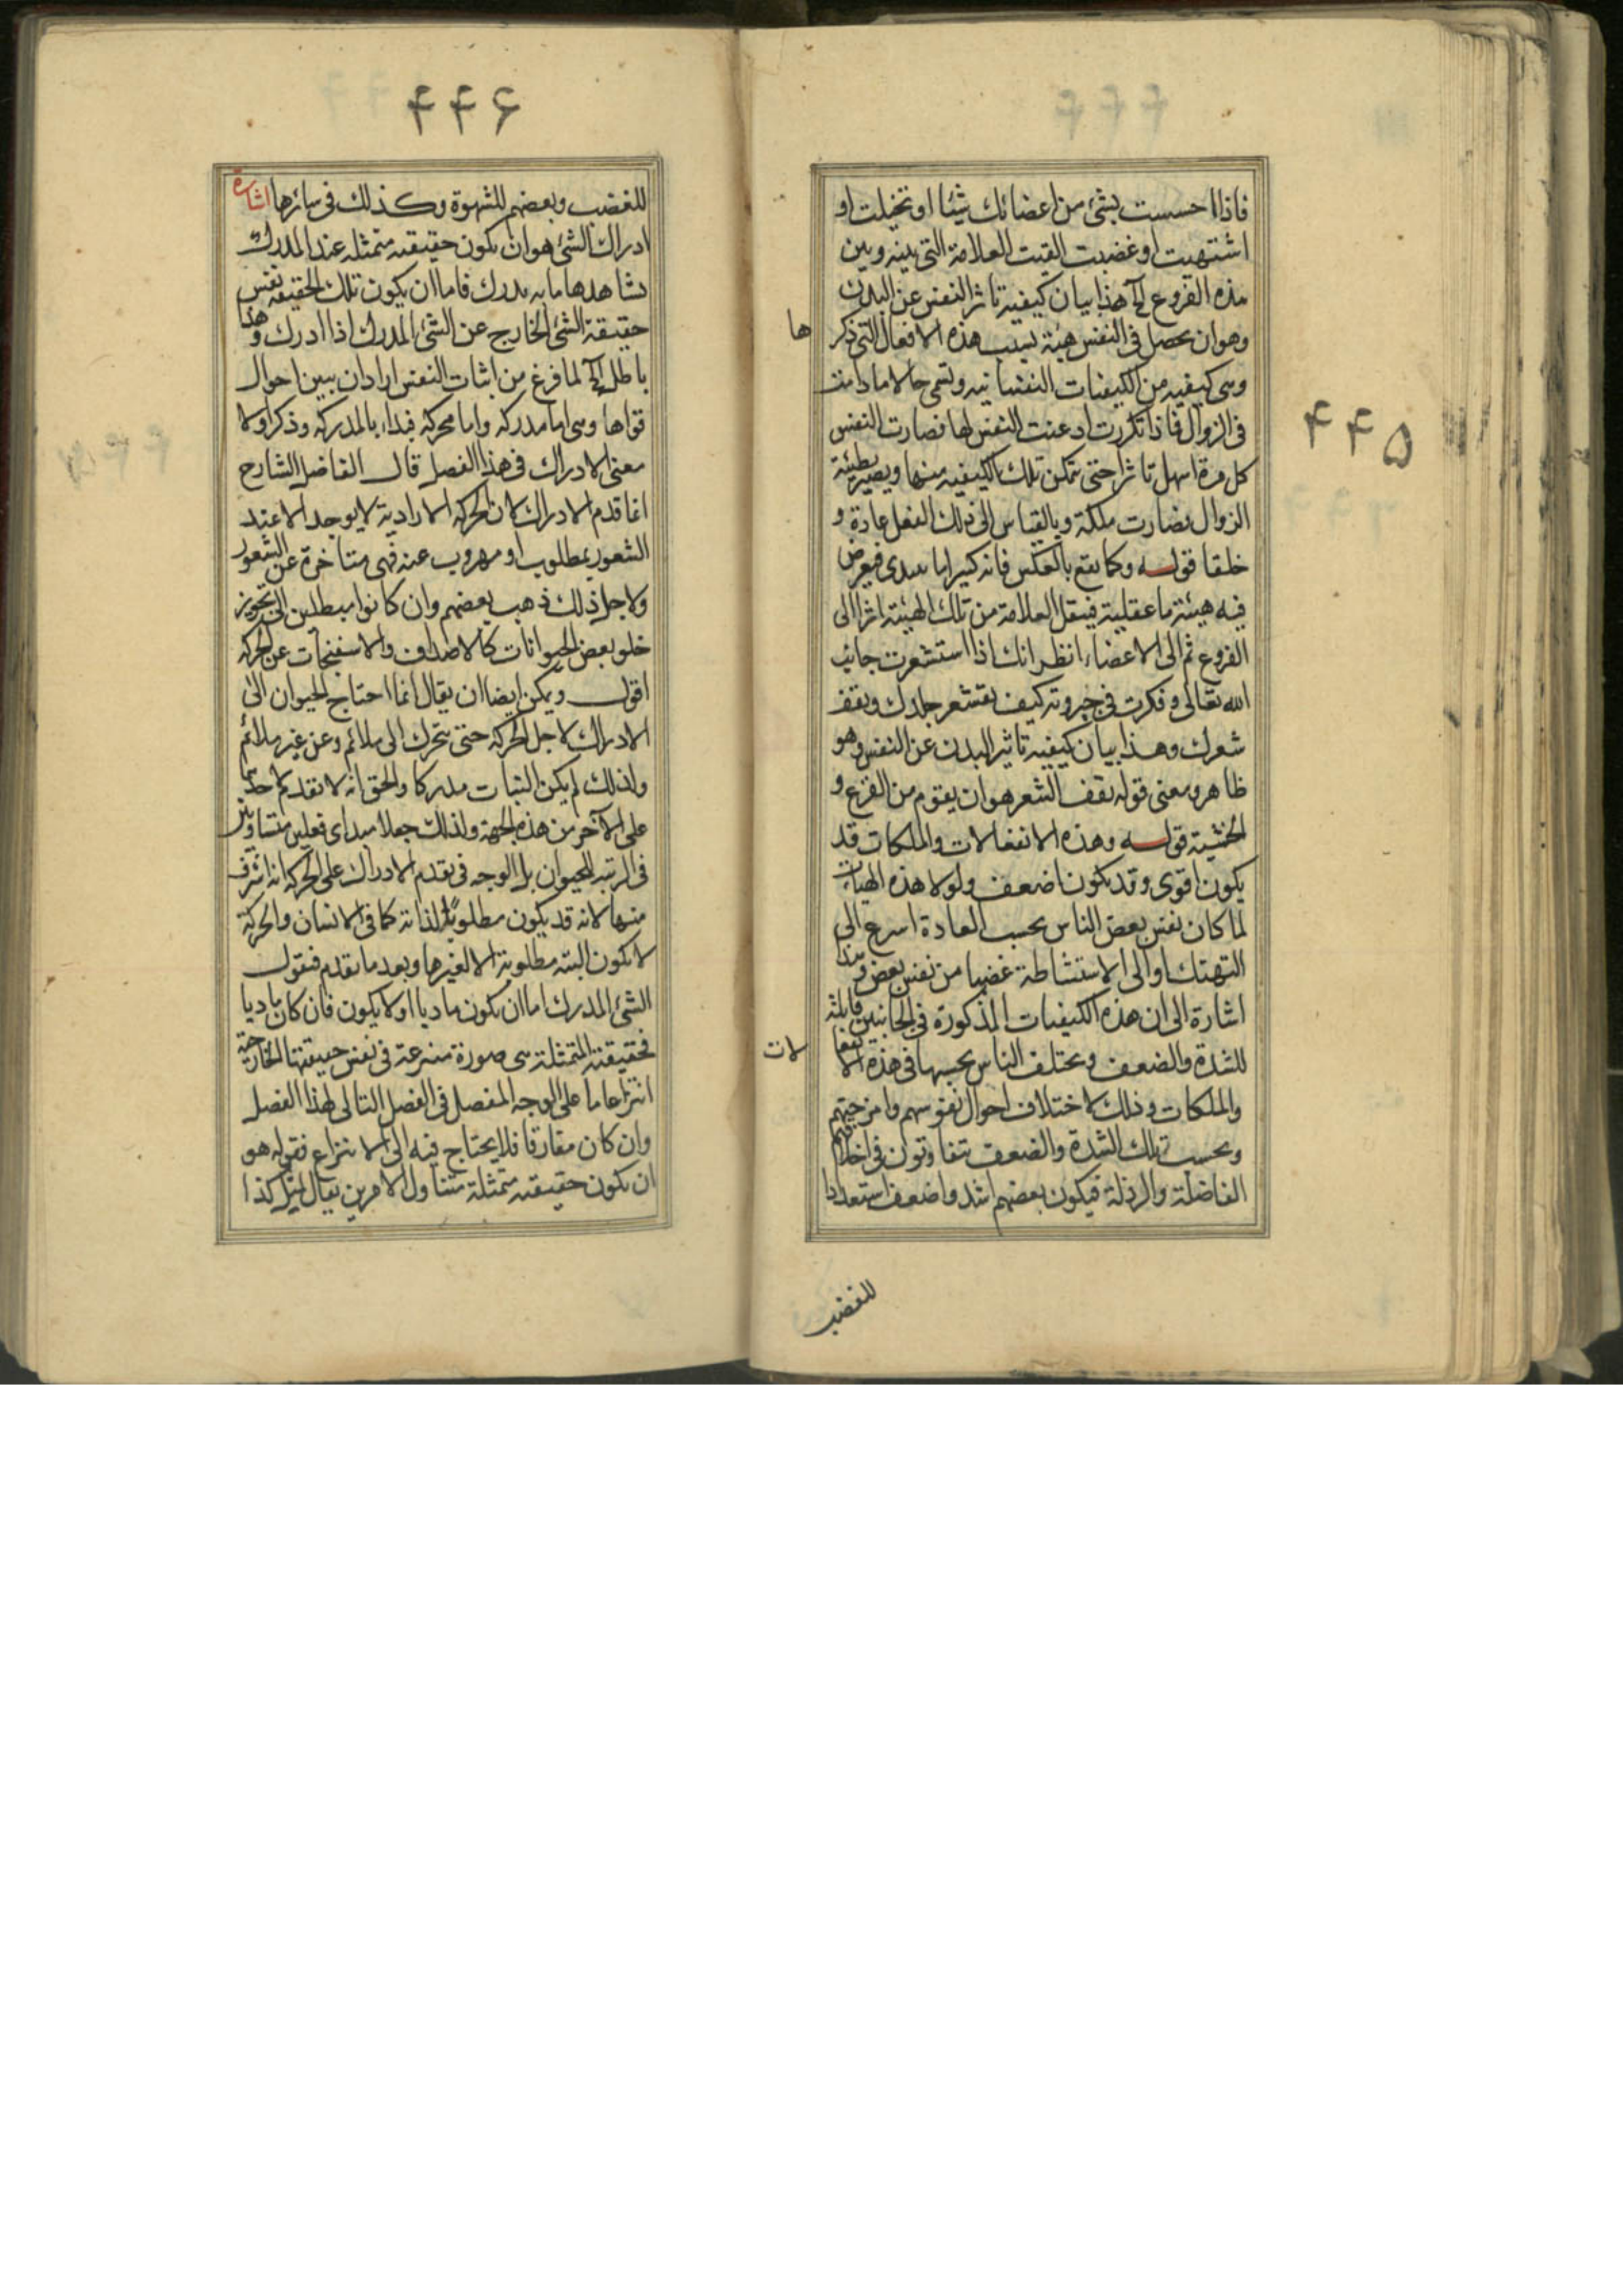 ۴۴۵
فاذا احسست بشئ من اعضائك شيئا او تخيلت او
اشتهيت او غضبت القيت العلاقة التى بينه و بين
هذه الفروع الخ هذا بيان كيفية تاثر النفس عن البدن
وهو ان يحصل فى النفس هيئة بسبب هذه الافعال التى ذكر
ها
وهى كيفيه من الكيفيات النفسانيه وتسمى حالا مادامت
فى الزوال فاذا تكررت اذعنت النفس لها فصارت النفس
كل مرة اسهل تاثرا حتى تمكن تلك الكيفيه منها ويصير بطيئة
الزوال فصارت ملكة وبالقياس الى ذلك الفعل عادة و
خلقا قوله وكما يقع بالعكس فانه كثيرا ما يبتدى فيعرض
فيه هيئة ما عقلية فينقل العلاقة من تلك الهيئة اثرا الى
الفروع ثم الى الاعضاء انظر انك اذا استشعرت جانب
الله تعالى وفكرت فى جبروته كيف يقشعر جلدك ويقف
شعرك وهذا بيان كيفية تاثير البدن عن النفس وهو
ظاهر ومعنى قوله يقف الشعر هو ان يقوم من الفزع و
الخشية قوله وهذه الانفعالات والملكات قد
يكون اقوى وقد يكون اضعف ولولا هذه الهيات
لما كان نفس بعض الناس بحسب العادة اسرع الى
التهتك او الى الاستشاطة غضبا من نفس بعض وهذا
اشارة الى ان هذه الكيفيات المذكورة فى الجانبين قابلة
للشدة والضعف ويختلف الناس بحسبها فى هذه الانفعا
لات
والملكات وذلك لاختلاف احوال نفوسهم وامزجتهم
وبحسب تلك الشدة والضعف يتفاوتون فى اخلاقهم
الفاضلة والرذلة فيكون بعضهم اشد واضعف استعدادا
للغضب
۴۴۶
للغضب وبعضهم للشهوة وكذلك فى سائرها اشارة
ادراك الشئ هو ان يكون حقيقته متمثله عند المدرك
يشاهدها ما به يدرك فاما ان يكون تلك الحقيقه نفس
حقيقة الشئ الخارج عن الشئ المدرك اذا ادرك وهذا
باطل الخ لما فرغ من اثبات النفس اراد ان يبين احوال
قواها وهى اما مدركه واما محركه فبداء بالمدركه وذكر اولا
معنى الادراك فى هذا الفصل قال الفاضل الشارح
انما قدم الادراك لان الحركه الارادية لا يوجد الا عند
الشعور بمطلوب او مهروب عنه فهى متاخرة عن الشعور
ولاجل ذلك ذهب بعضهم وان كانوا مبطلين الى تجويز
خلو بعض الحيوانات كالاصداف والاسفنجات عن الحركه
اقول ويمكن ايضا ان يقال انما احتاج الحيوان الى
الادراك لاجل الحركه حتى يتحرك الى ملائم وعن غير ملائم
ولذلك لم يكن النبات مدركا والحق انه لا تقدم لاحدهما
على الآخر من هذه الجهة ولذلك جعلا مبداى فصلين متساويين
فى الرتبه للحيوان بل الوجه فى تقدم الادراك على الحركه انه اشرف
منها لانه قد يكون مطلوبا لذاته كما فى الانسان والحركة
لا تكون البته مطلوبة الا لغيرها وبعد ما تقدم فنقول
الشئ المدرك اما ان يكون ماديا او لا يكون فان كان ماديا
فحقيقته المتمثلة هى صورة منتزعة فى نفس حقيقتها الخارجية
انتزاعا ما على الوجه المفصل فى الفصل التالى لهذا الفصل
وان كان مفارقا فلا يحتاج فيه الى الانتزاع فقوله هو
ان يكون حقيقته متمثلة متناول الامرين يقال تمثل كذا